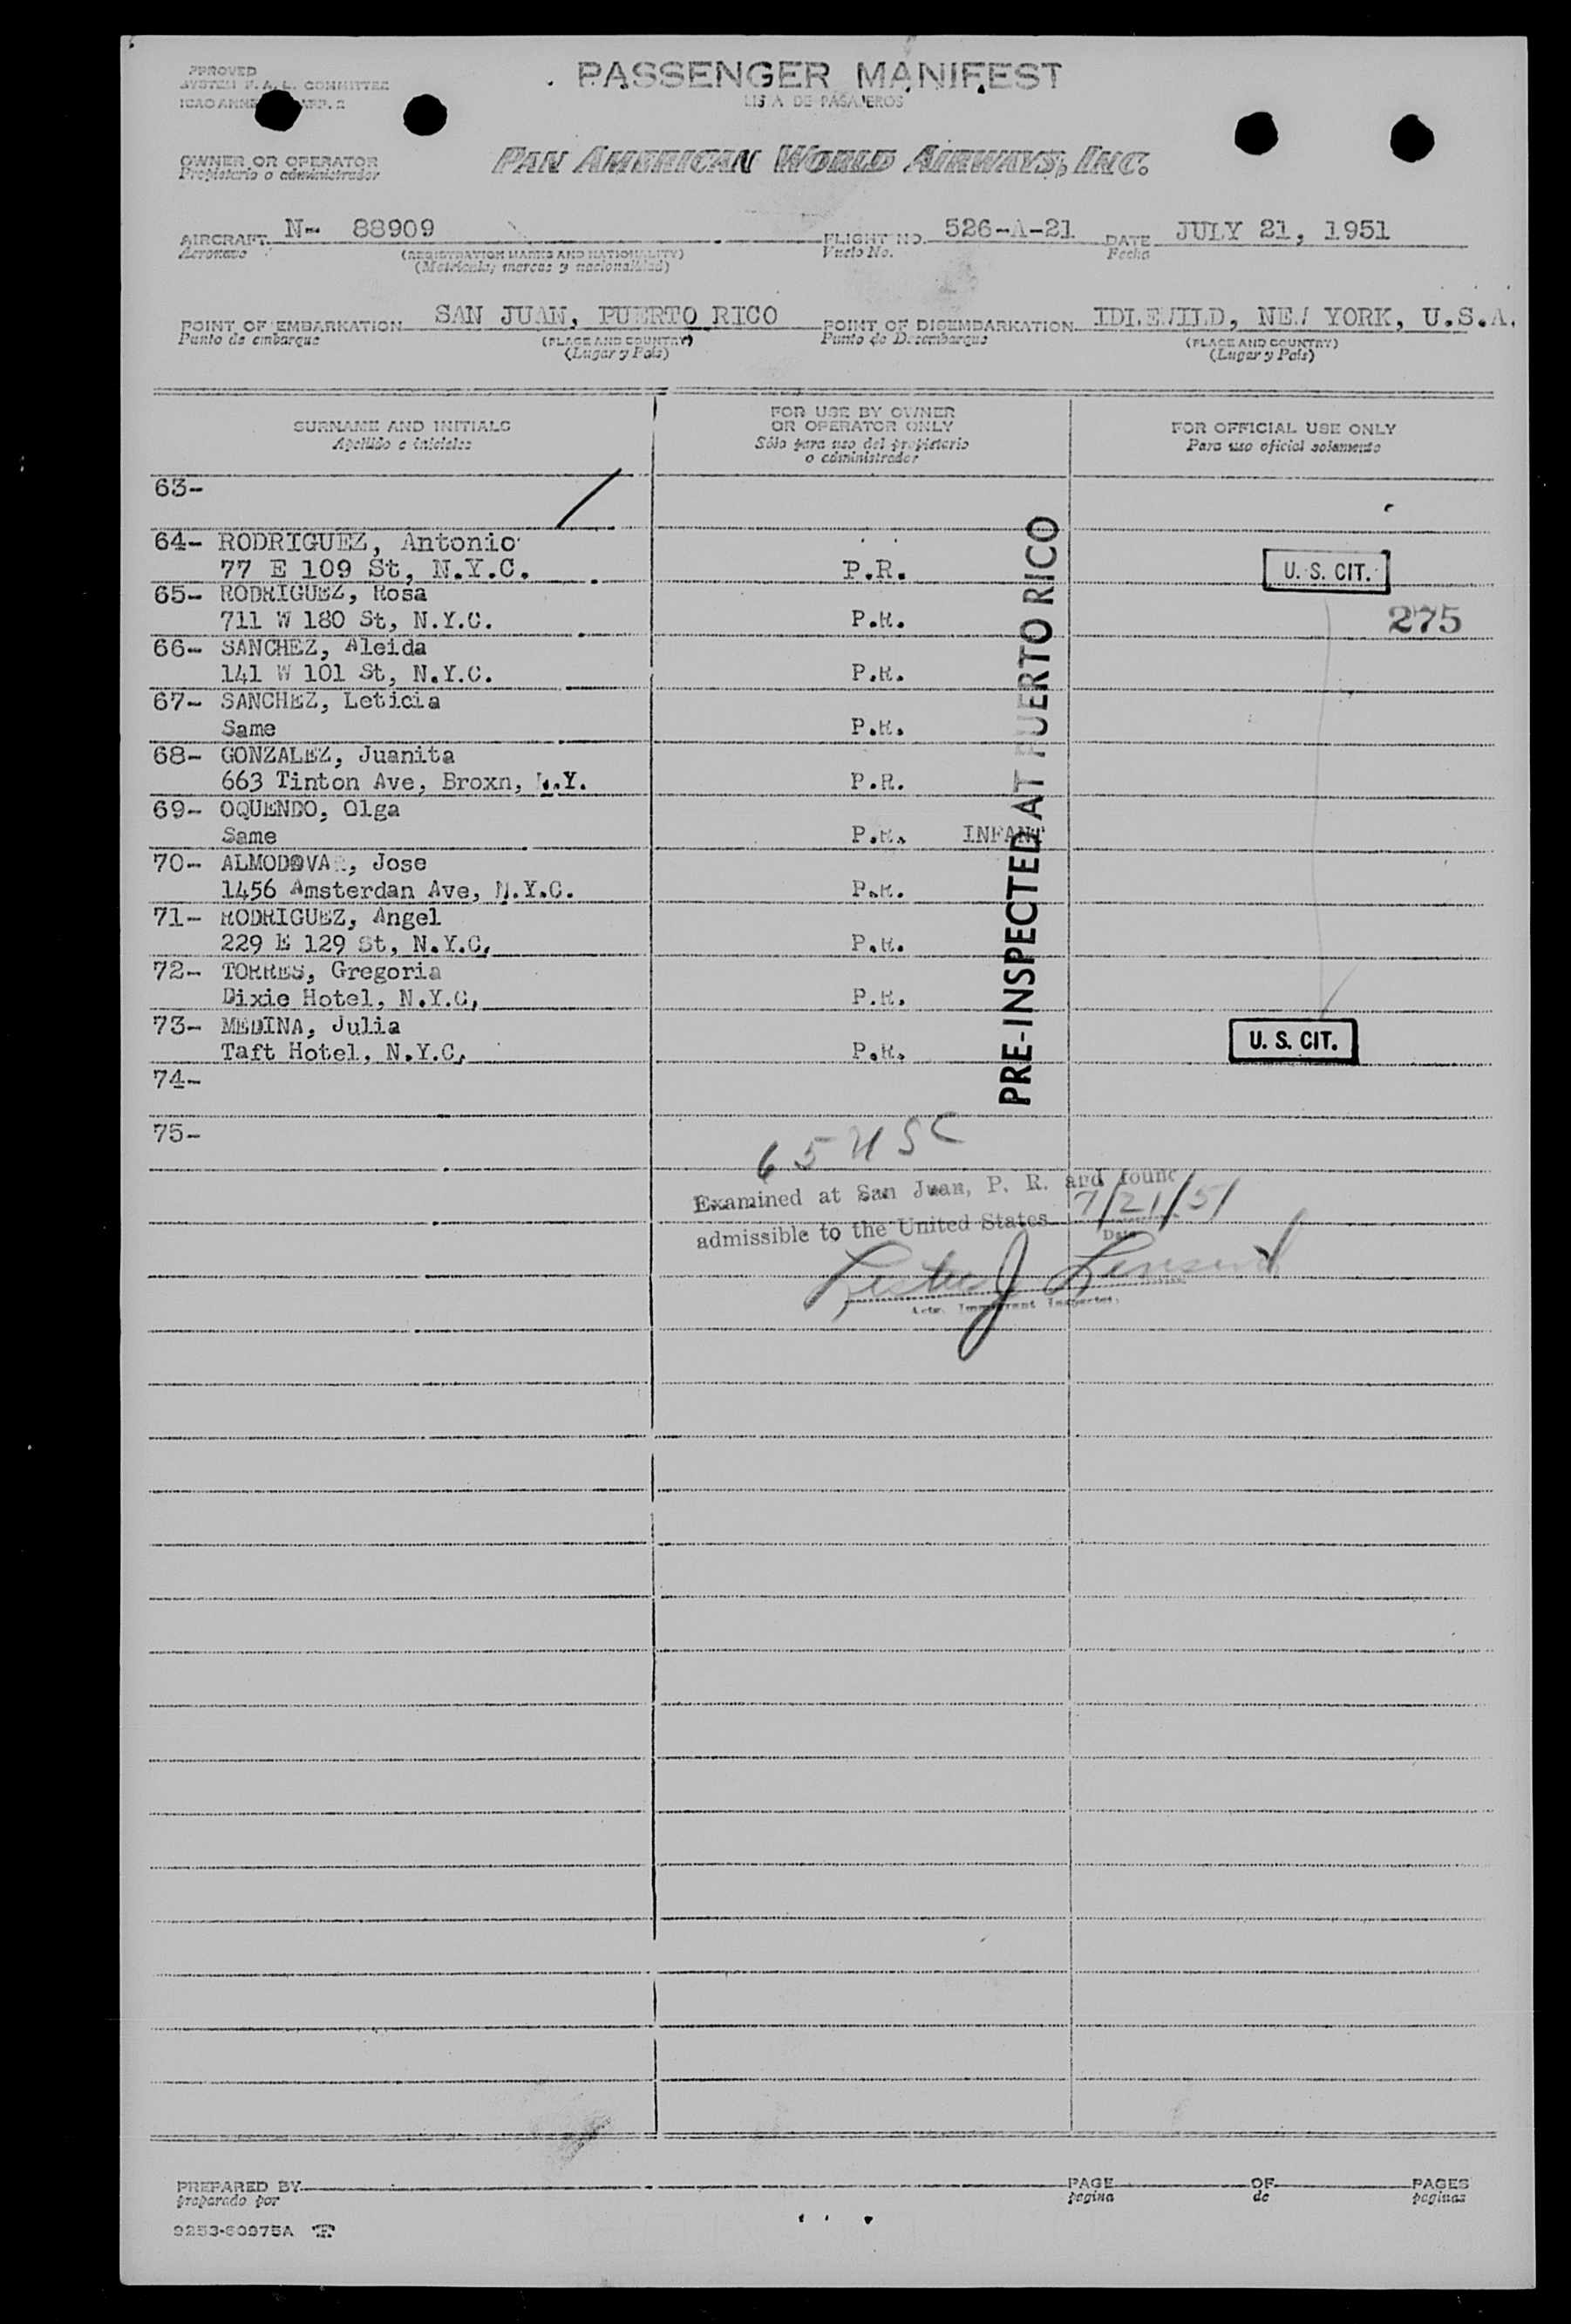 PPROVED
SYSTEM F. A. L. COMMITTEE
ICAO ANNE APP. 2
PASSENGER MANIFEST
LISTA DE PASAJEROS
OWNER OR OPERATOR
Propietario o administrador
PAN AMERICAN WORLD AIRWAYS, INC.
AIRCRAFT N- 88909 FLIGHT NO. 526-A-21 DATE JULY 21, 1951
Aeronave (REGISTRATION MARKS AND NATIONALITY) Vuelo No. Fecha
(Matricula, marcas y nacionalidad)
POINT OF EMBARKATION SAN JUAN, PUERTO RICO POINT OF DISEMBARKATION IDLEWILD, NEW YORK, U.S.A.
Punto de embarque (PLACE AND COUNTRY) Punto de Desembarque (PLACE AND COUNTRY)
(Lugar y País) (Lugar y País)
SURNAME AND INITIALS
Apellido e iniciales
FOR USE BY OWNER
OR OPERATOR ONLY
Sólo para uso del propietario
o administrador
FOR OFFICIAL USE ONLY
Para uso oficial solamente
63-
64- RODRIGUEZ, Antonio
77 E 109 St, N.Y.C. P.R. U. S. CIT.
65- RODRIGUEZ, Rosa
711 W 180 St, N.Y.C. P.R. 275
66- SANCHEZ, Aleida
141 W 101 St, N.Y.C. P.R.
67- SANCHEZ, Leticia
Same P.R.
68- GONZALEZ, Juanita
663 Tinton Ave, Broxn, N.Y. P.R.
69- OQUENDO, Olga
Same P.R. INFANT
70- ALMODOVAR, Jose
1456 Amsterdan Ave, N.Y.C. P.R.
71- RODRIGUEZ, Angel
229 E 129 St, N.Y.C, P.R.
72- TORRES, Gregoria
Dixie Hotel, N.Y.C, P.R.
73- MEDINA, Julia
Taft Hotel, N.Y.C, P.R. U. S. CIT.
74-
75-
PRE-INSPECTED AT PUERTO RICO
65 USC
Examined at San Juan, P. R. and found
admissible to the United States 7/21/51
Date
Lester J
Actg. Immigrant Inspector.
PREPARED BY PAGE OF PAGES
preparado por pagina de paginas
9253-60975A